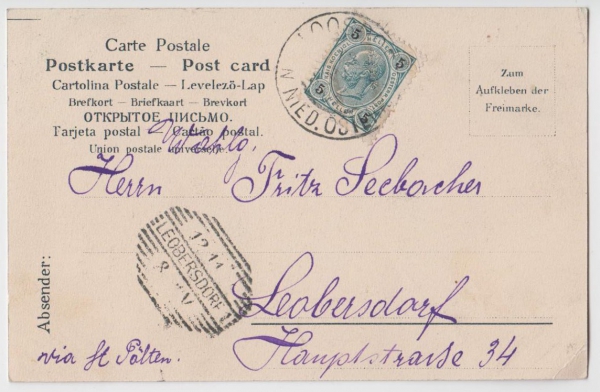 Carte Postale
Postkarte — Post card
Cartolina Postale — Levelező-Lap
Brefkort — Briefkaart — Brevkort
ОТКРЫТОЕ ПИСЬМО.
Tarjeta postal — Cartão postal.
Union postale universelle.
LOOS
N NIED. ÖST
5 5
5 5
Zum
Aufkleben der
Freimarke.
Herrn Fritz Seebacher
LEOBERSDORF
12 11
8 V
Absender:
Leobersdorf
via St Pölten. Hauptstraße 34